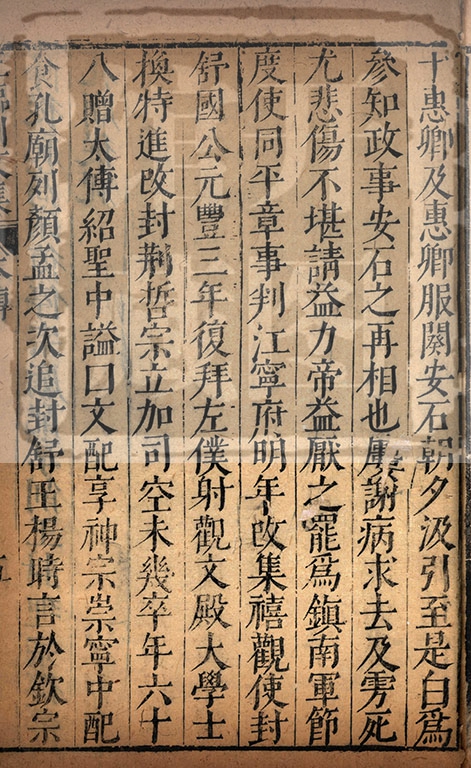 于惠卿及惠卿服闋安石朝夕汲引至是白爲
參知政事安石之再相也屢謝病求去及雱死
尤悲傷不堪請益力帝益厭之罷爲鎮南軍節
度使同平章事判江寧府明年改集禧觀使封
舒國公元豐三年復拜左僕射觀文殿大學士
換特進改封荆哲宗立加司空未幾卒年六十
八贈太傅紹聖中謚曰文配享神宗崇寧中配
食孔廟列顏孟之次追封舒王楊時言於欽宗
五